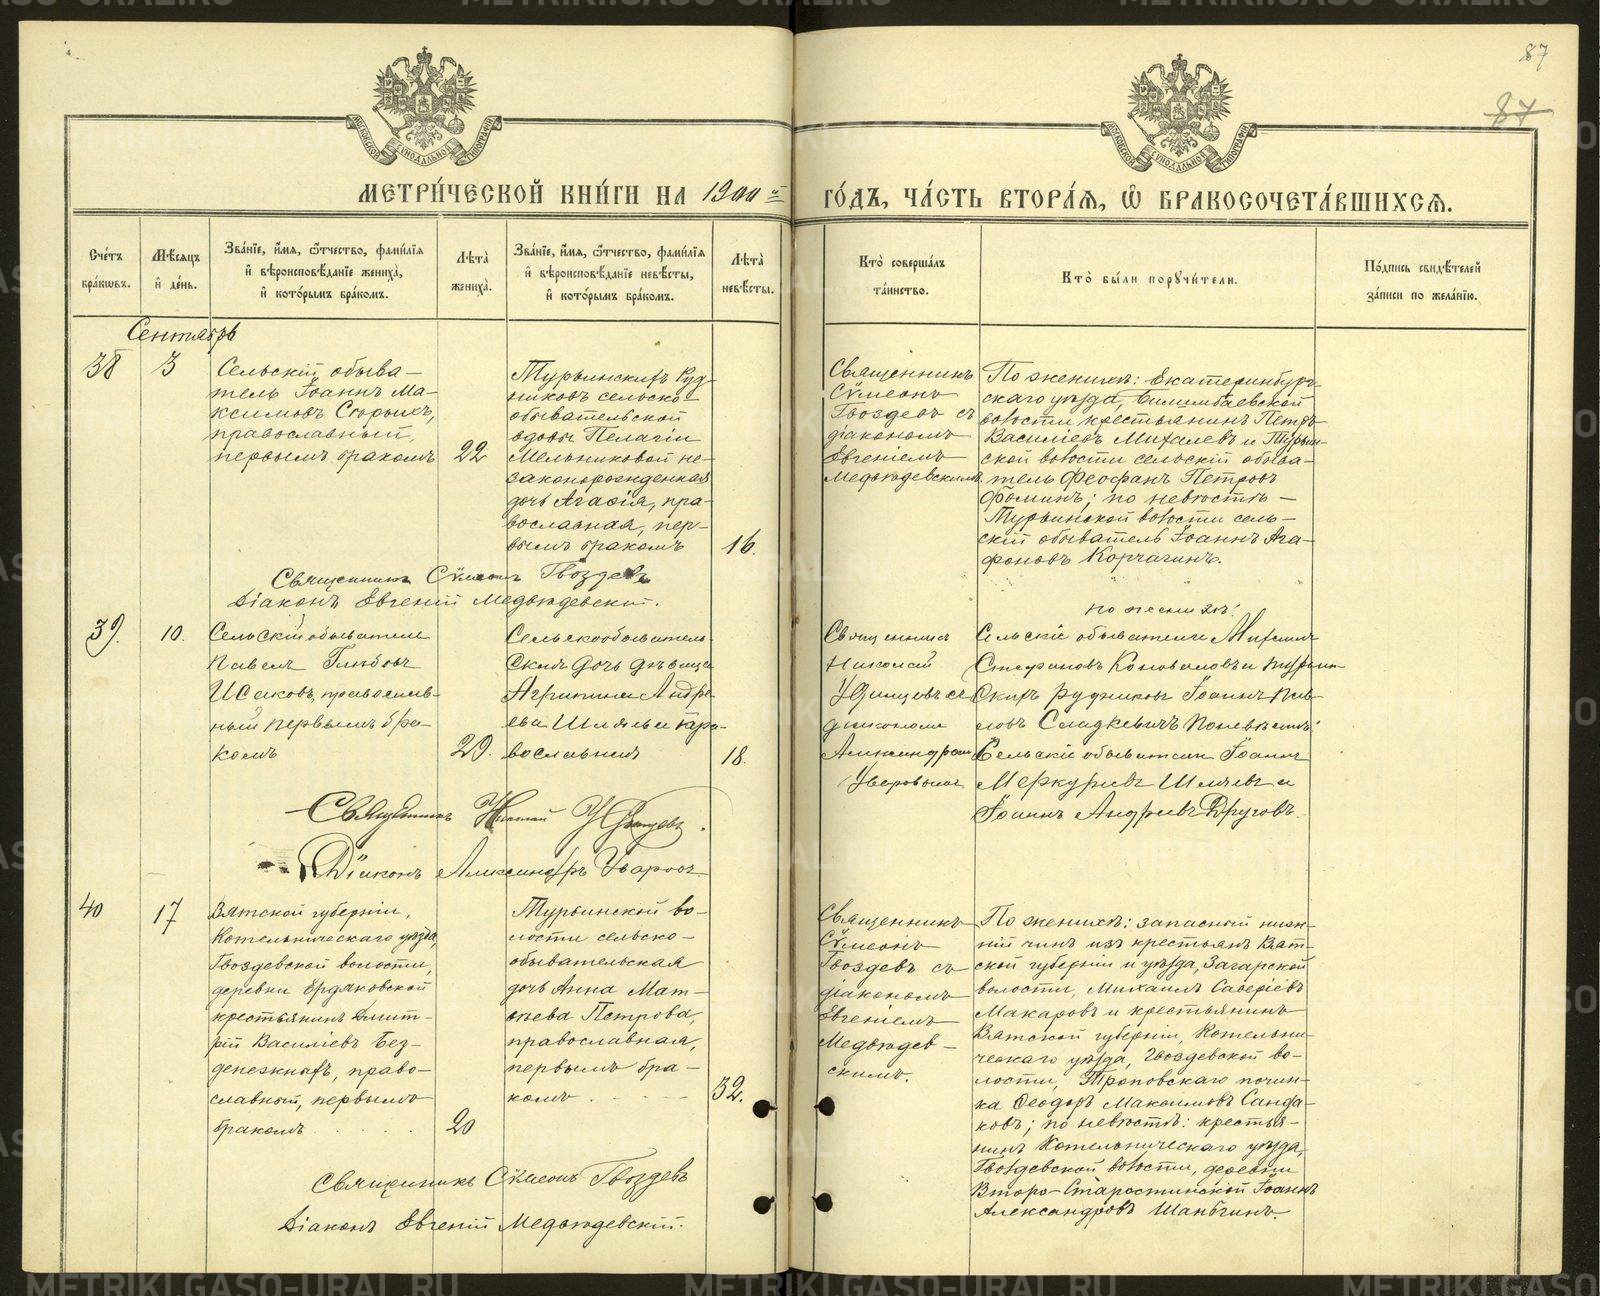 87
87
МОСКОВСКОЙ СѴНОДАЛЬНОЙ ТИПОГРАФІИ
МОСКОВСКОЙ СѴНОДАЛЬНОЙ ТИПОГРАФІИ
МЕТРИ́ЧЕСКОЙ КНИ́ГИ НА 1900 й ГО́ДЪ, ЧА́СТЬ ВТОРА́Я, Ѡ БРАКОСОЧЕТА́ВШИХСЯ.
Сче́тъ
бра́кѡвъ.
Мѣ́сяцъ
и҆ де́нь.
Зва́нїе, и҆́мя, ѻ҆́тчество, фами́лїя
и҆ вѣроисповѣ́данїе жениха̀,
и҆ кото́рымъ бра́комъ.
Лѣ́та̀
жениха̀.
Зва́нїе, и҆́мя, ѻ҆́тчество, фами́лїя
и҆ вѣроисповѣ́данїе невѣ́сты,
и҆ кото́рымъ бра́комъ.
Лѣ́та̀
невѣ́сты.
Кто̀ соверша́лъ
та́инство.
Кто̀ бы́ли порꙋчи́тели.
По́дпись свидѣ́телей
за́писи по жела́нїю.
Сентябрь
38
3
Сельскій обыва-
тель Іоаннъ Ма-
ксимовъ
православный,
первымъ бракомъ
22
Турьинскихъ Руд-
никовъ сельско-
обывательской
вдовы Пелагіи
Мельниковой не-
законорожденная
дочь Агафія, пра-
вославная, пер-
вымъ бракомъ
16.
Священникъ
Сѵмеонъ
Гвоздевъ съ
діакономъ
Евгеніемъ
Медвѣдевскимъ.
По женихѣ: Екатеринбург-
скаго уѣзда, Билимбаевской
волости крестьянинъ Петръ
Василіевъ Михалевъ и Турьин-
ской волости сельскій обыва-
тель Феофанъ Петровъ
Фоминъ; по невѣстѣ —
Турьинской волости сель-
скій обыватель Іоаннъ Ага-
фоновъ Корчагинъ.
Священникъ Сѵмеонъ Гвоздевъ
Діаконъ Евгеній Медвѣдевскій.
39.
10.
Сельскій обыватель
Павелъ Глѣбовъ
Исаковъ, православ-
ный первымъ бра-
комъ
29.
Сельскообыватель-
ская дочь дѣвица
Агрипина Андре-
ева Шиляева пра-
вославная
18.
Священникъ
Николай
Удинцевъ съ
діакономъ
Александромъ
Уваровымъ
по женихѣ:
Сельскіе обыватели Михаилъ
Стефановъ Коноваловъ и Турьин-
скихъ рудниковъ Іоаннъ Пав-
ловъ Сладкевичъ по невѣстѣ:
Сельскіе обыватели Іоаннъ
Меркурьевъ Шиляевъ и
Іоаннъ Андреевъ Друговъ.
Священникъ Николай Удинцевъ.
Діаконъ Александръ Уваровъ
40
17
Вятской губерніи,
Котельническаго уѣзда,
Гвоздевской волости,
деревни Ердяковской
крестьянинъ Дмит-
рій Василіевъ Без-
денежныхъ, право-
славный, первымъ
бракомъ
20
Турьинской во-
лости сельско-
обывательская
дочь Анна Мат-
ѳеева Петрова,
православная,
первымъ бра-
комъ
32.
Священникъ
Сѵмеонъ
Гвоздевъ съ
діакономъ
Евгеніемъ
Медвѣдев-
скимъ.
По женихѣ: запасный ниж-
ній чинъ изъ крестьянъ Вят-
ской губерніи и уѣзда, Загарской
волости, Михаилъ Саверіевъ
Макаровъ и крестьянинъ
Вятской губерніи, Котельни-
ческаго уѣзда, Гвоздевской во-
лости, Троповскаго почин-
ка Ѳеодоръ Максимовъ Санда-
ковъ; по невѣстѣ: крестья-
нинъ Котельническаго уѣзда,
Гвоздевской волости, деревни
Второ-Старостинской Іоаннъ
Александровъ Шабегинъ.
Священникъ Сѵмеонъ Гвоздевъ
Діаконъ Евгеній Медвѣдевскій.
METRIKI.GASO-URAL.RU